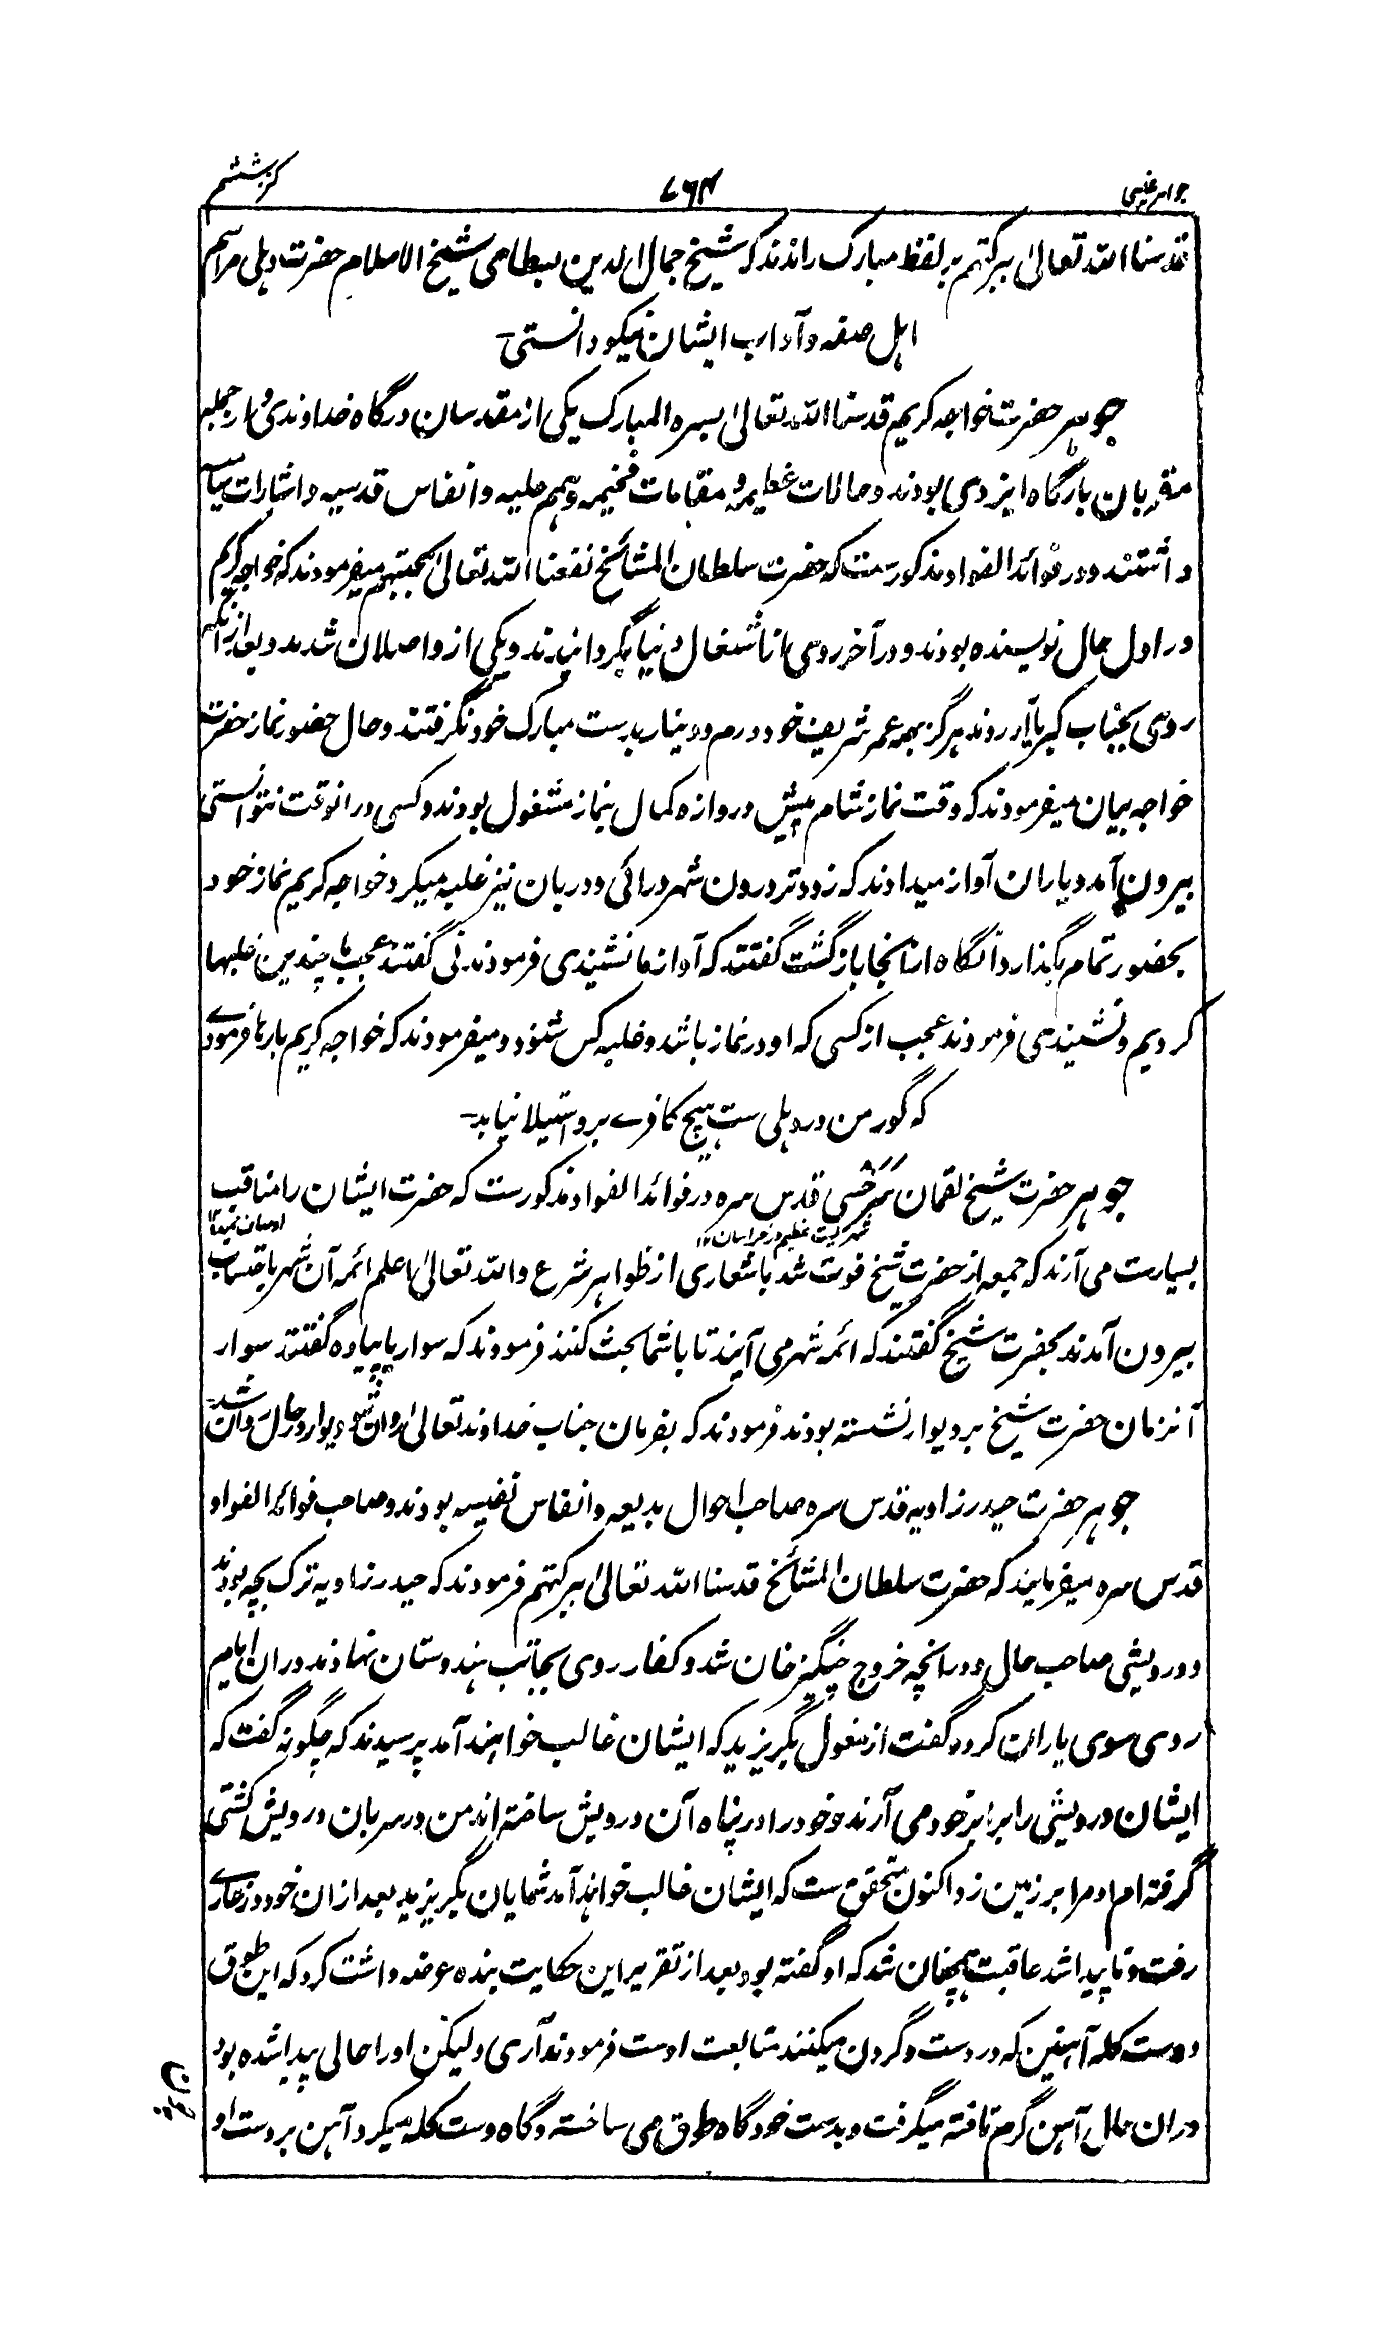 جواهر غیبی
۷۶۴
کنز ششم
قدسنا الله تعالیٰ ببرکتهم بر لفظ مبارک راندند که شیخ جمال الدین بسطامی شیخ الاسلام حضرت دهلی مراسم
اهل صفه و آداب ایشان نیکو دانستی-
جوهر حضرت خواجه کریم قدسنا الله تعالیٰ بسره المبارک یکی از مقدسان درگاه خداوندی و از جمله
مقربان بارگاه ایزدی بودند و حالات عظیمه و مقامات فخیمه و همم علیه و انفاس قدسیه و اشارات
داشتند و در فوائد الفواد مذکورست که حضرت سلطان المشائخ نفعنا الله تعالیٰ بمحبتهم میفرمودند که خواجه کریم
در اول حال نویسنده بودند و در آخر روی از اشغال دنیا بگردانیدند و یکی از واصلان شدند و بعد ازانکه
روی بجناب کبریا آوردند هرگز بهمه عمر شریف خود درم و دینار بدست مبارک خود نگرفتند و حال حضور نماز حضرت
خواجه بیان میفرمودند که وقت نماز شام پیش دروازه کمال بنماز مشغول بودند و کسی درانوقت نتوانستی
بیرون آمد و یاران آواز میدادند که زودتر درون شهر درائی و دربان نیز غلبه میکرد خواجه کریم نماز خود
بحضور تمام بگذارد آنگاه ازانجا بازگشت گفتند که آواز ما نشنیدی فرمودند نی گفتند عجب ما چندین غلبها
کردیم و نشنیدی فرمودند عجب از کسی که او در نماز باشد و غلبه کس شنود و میفرمودند که خواجه کریم بارها فرمودے
که گور من در دهلی ست هیچ کافرے برو استیلا نیابد-
جوهر حضرت شیخ لقمان سرخسی قدس سره در فوائد الفواد مذکورست که حضرت ایشان را مناقب
شهریست عظیم در خراسان ۱۲
اوصاف حمیده ۱۲
بسیارست می آرند که جمعه از حضرت شیخ فوت شد باشعاری از ظواهر شرع والله تعالیٰ اعلم ائمه آن شهر باحتساب
بیرون آمدند بحضرت شیخ گفتند که ائمه شهر می آیند تا باشما بحث کنند فرمودند که سوار یا پیاده گفتند سوار
آنزمان حضرت شیخ بر دیوار نشسته بودند فرمودند که بفرمان جناب خداوند تعالیٰ روان شو دیوار در حال روان شد-
جوهر حضرت حیدر زاویه قدس سره صاحب احوال بدیعه و انفاس نفیسه بودند و صاحب فوائد الفواد
قدس سره میفرمایند که حضرت سلطان المشائخ قدسنا الله تعالیٰ ببرکتهم فرمودند که حیدر زاویه ترک بچه بودند
و درویشی صاحب حال و درانچه خروج چنگیز خان شد و کفار روی بجانب هندوستان نهادند دران ایام
روی سوی یاران کرد و گفت از مغول بگریزید که ایشان غالب خواهند آمد پرسیدند که چگونه گفت که
ایشان درویشی را برابر خود می آرند و خود را در پناه آن درویش ساخته اند من در سر بان درویش کشتی
گرفته ام او مرا بر زمین زد اکنون متحقق ست که ایشان غالب خواهند آمد شمایان بگریزید بعد ازان خود در غارے
رفت و ناپیدا شد عاقبت همچنان شد که او گفته بود بعد از تقریر این حکایت بنده عرضه داشت کرد که این طوق
و دست کله آهنین که در دست و گردن میکنند متابعت اوست فرمودند آری ولیکن او را حالی پیدا شده بود
دران حال آهن گرم تافته میگرفت و بدست خود گاه طوق می ساخته و گاه دست کله میکرد آهن بر دست او
چون